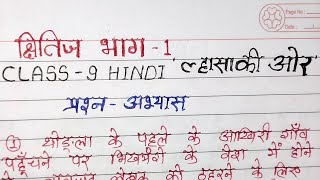 Page No. :
क्षितिज भाग -1
CLASS-9 HINDI 'ल्हासा की ओर'
प्रश्न-अभ्यास
① थोङ्ला के पहले के आखिरी गाँव
पहुँचने पर भिखमंगे के वेश में होने
लेखक को ठहरने के लिए